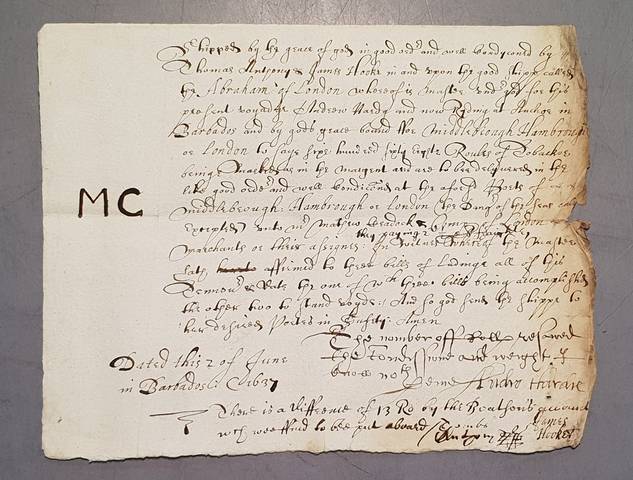 Shipped by the grace of god in good ordr and well Condyconed by
Thomas Anthony & James Hooke in and upon the good Shipp called
the Abraham of London whereof is master undr god for this
present voyadge Andrew Hardy and now Ryding at Anchor in
Barbados and by gods grace bound ffor Middlebrough Hambrough
or London to saye syxe hundred sixty eight Roules of Tobackoe
being marked as in the margent and are to bee delivered in the
like good ordr and well Condiconed at the aforsd Ports of
MC
middlebrough: Hambrough or London the dangr of the seas only
Excepted unto mr Mathew Cradock & London
they paying
marchants or their assignes: In witnes whereof the Master
hath affirmed to three bills of Ladinge all of this
Tennour & Date the one of wch three bills being accomplished
the other two to stand voyde: And so god send the shippe to
her desired Portes in Safety: Amen
The number off Rolls reseved
the Condissione and weight I
Dated this 2 of June
in Barbados 1637
know not
Andro Hardie
There is a differenc of 13 Ro by the Boatsons account
wch wee ffind to bee put aboard
James
Hooke
Anthony